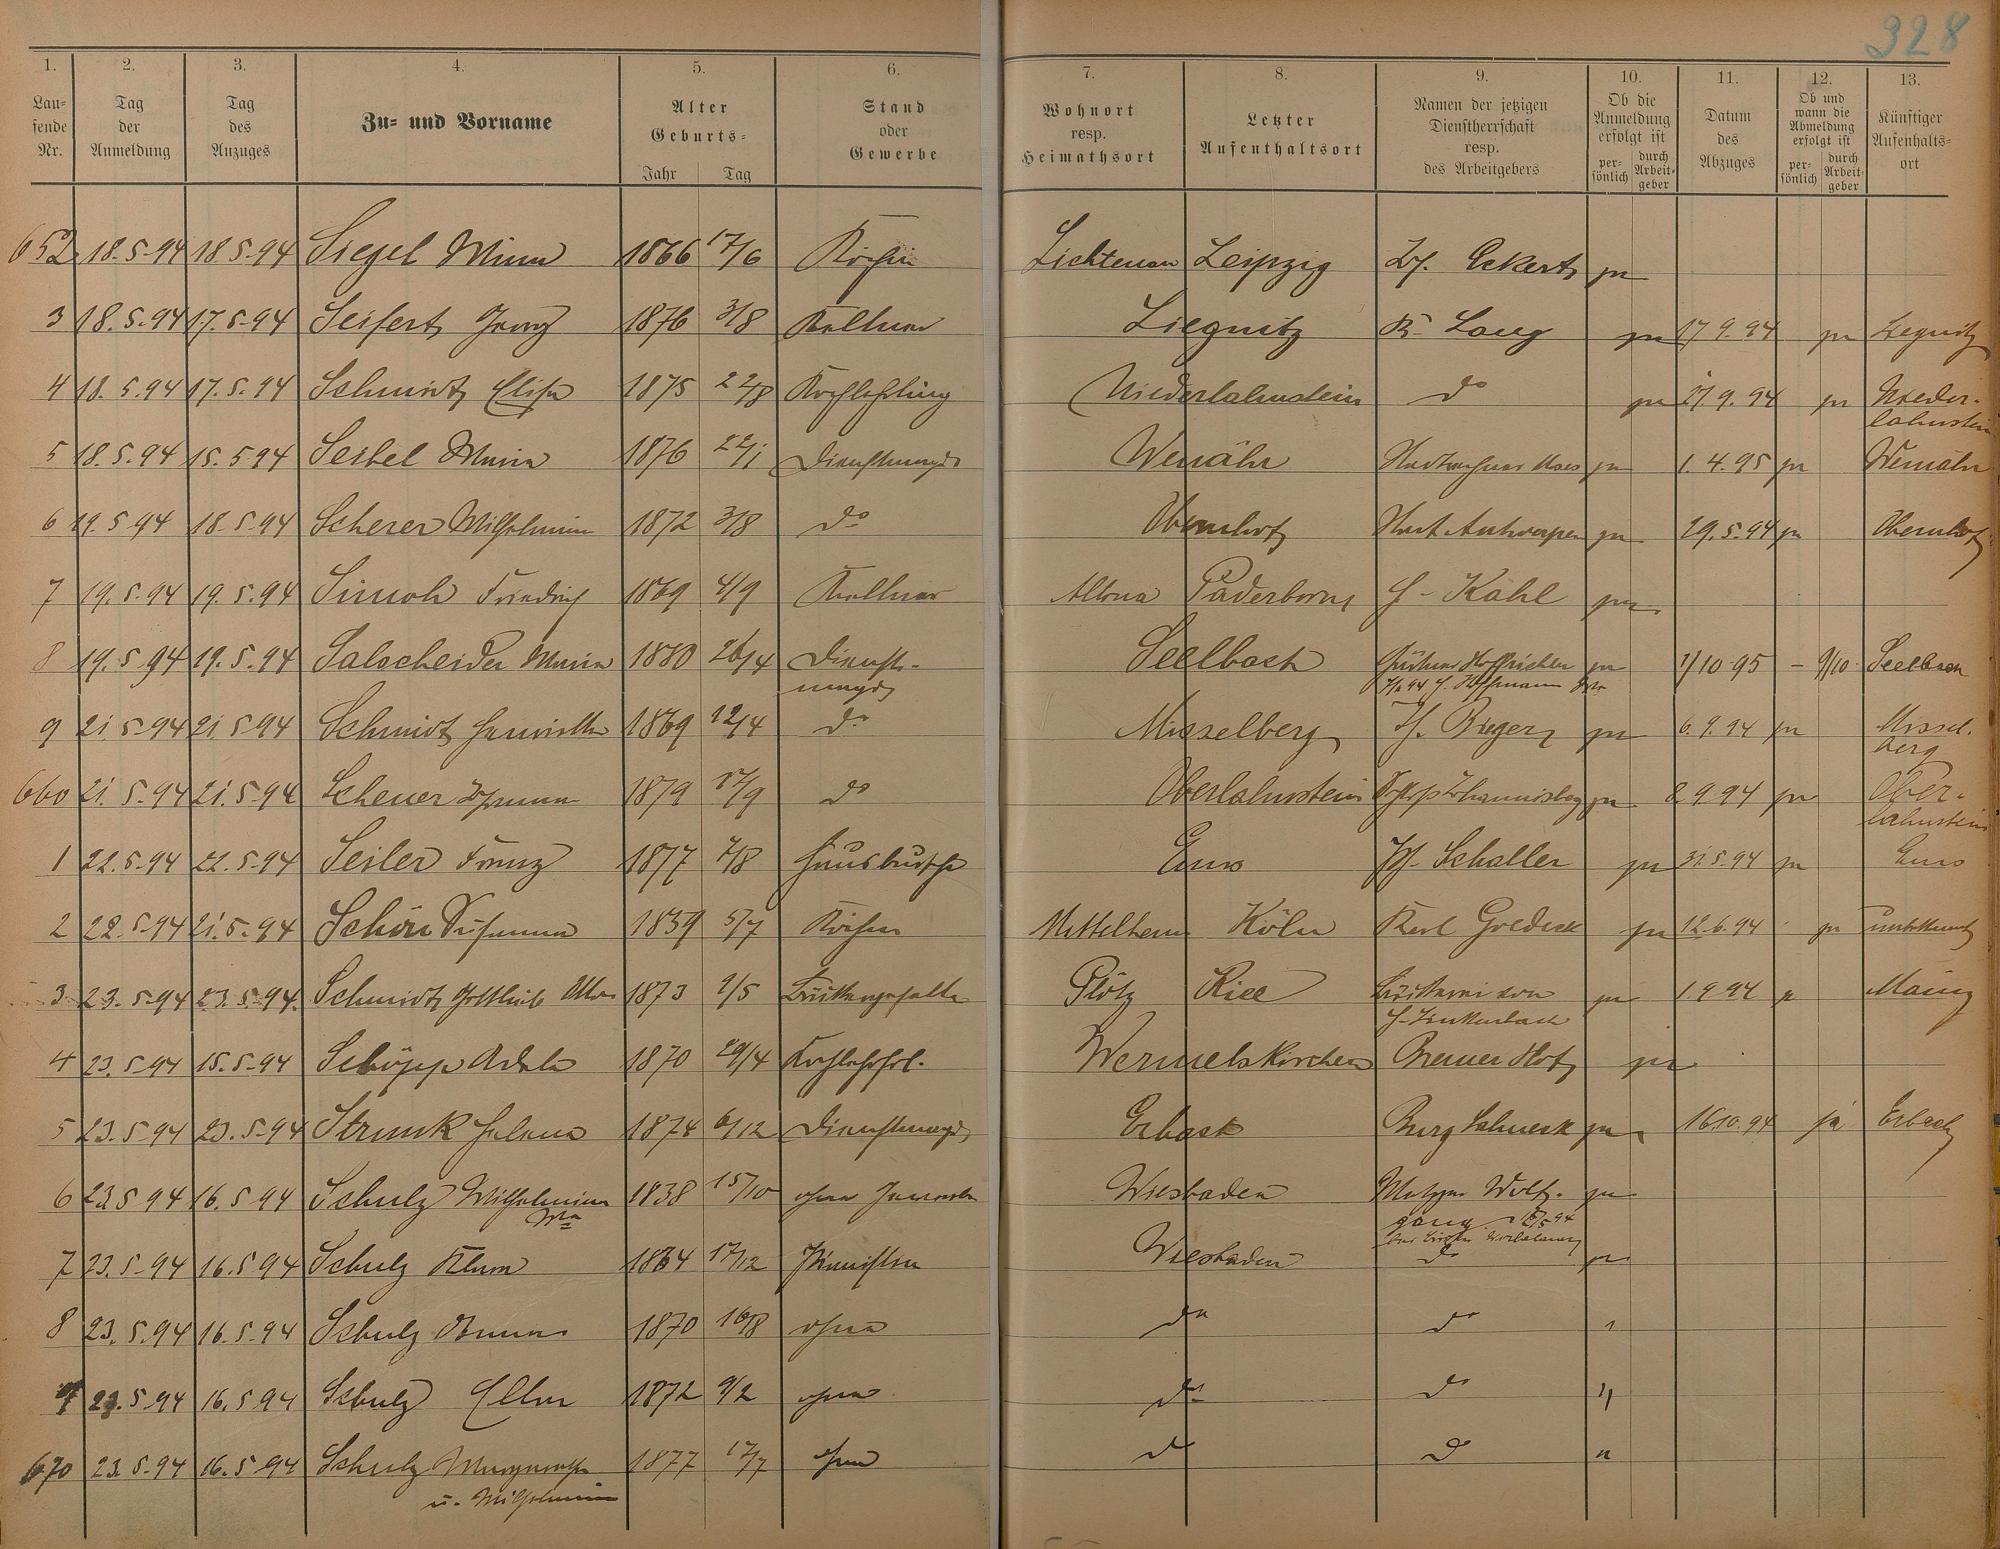 328
1. 2. 3. 4. 5. 6. 7. 8. 9. 10. 11. 12. 13.
Lau= fende Nr. Tag der Anmeldung Tag des Anzuges Zu= und Vorname Alter Geburts= Jahr Tag Stand oder Gewerbe Wohnort resp. Heimathsort Letzter Aufenthaltsort Namen der jetzigen Dienstherrschaft resp. des Arbeitgebers Ob die Anmeldung erfolgt ist per= sönlich durch Arbeit= geber Datum des Abzuges Ob und wann die Abmeldung erfolgt ist per= sönlich durch Arbeit= geber Künftiger Aufenthalts= ort
652 18.5.94 18.5.94 Siegel Minna 1866 17/6 Köchin Lichtenau Leipzig Eckert ja
3 18.5.94 17.5.94 Seifert Georg 1876 3/8 Kellner Liegnitz Lang ja 17.9.94 ja Liegnitz
4 18.5.94 17.5.94 Schmidt Elisa 1875 22/8 Kochlehrling Niederlahnstein do ja 27.9.94 ja Nieder-
lahnstein
5 18.5.94 15.5.94 Seibel Maria 1876 22/1 Dienstmagd Weinähr ja 1.4.95 ja Weinähr
6 19.5.94 18.5.94 Scherer Wilhelmine 1872 3/8 do Obernhof Stadt Antwerpen ja 29.5.94 ja Obernhof
7 19.5.94 19.5.94 Simon Friedrich 1869 4/9 Kellner Altona Paderborn H. Kahl ja
8 19.5.94 19.5.94 Salscheider Maria 1880 26/4 Dienst- Seelbach ja 1/10 95 - 9/10 Seelbach
magd Hoffmann
9 21.5.94 21.5.94 Schmidt Henriette 1869 12/4 do Misselberg Berger ja 6.9.94 ja Missel.
berg
660 21.5.94 21.5.94 Scheuer Johanna 1879 17/9 do Oberlahnstein Schloß Johannisberg ja 2.9.94 ja Ober-
lahnstein
1 22.5.94 22.5.94 Seiler Franz 1877 7/8 Hausbursche Ems Schaller ja 31.5.94 ja Ems
2 22.5.94 21.5.94 Schön Susanna 1859 5/7 Köchin Mittelheim Köln Karl ja 12.6.94 ja unbekannt
3 23.5.94 23.5.94 Schmidt Gottlieb Otto 1873 2/5 Bäckergeselle Plötz Kiel Bäckerei von ja 1.9.94 ja Mainz
4 23.5.94 15.5.94 Schöpp Adele 1870 29/4 Wermelskirchen Bremer Hof ja
5 23.5.94 23.5.94 Strunk Helena 1874 6/12 Dienstmagd Erbach Burg Lahneck ja 16.10.94 ja Erbach
6 23.5.94 16.5.94 Schulz Wilhelmine 1838 15/10 ohne Gewerbe Wiesbaden Metzger Wolf- ja
Wwe gang
7 23.5.94 16.5.94 Schulz Klara 1864 17/12 Pianistin Wiesbaden do ja
8 23.5.94 16.5.94 Schulz Anna 1870 16/8 ohne do do "
9 23.5.94 16.5.94 Schulz Ella 1872 9/2 ohne do do "
670 23.5.94 16.5.94 Schulz Margarethe 1877 17/7 ohne do do "
u. Wilhelmine